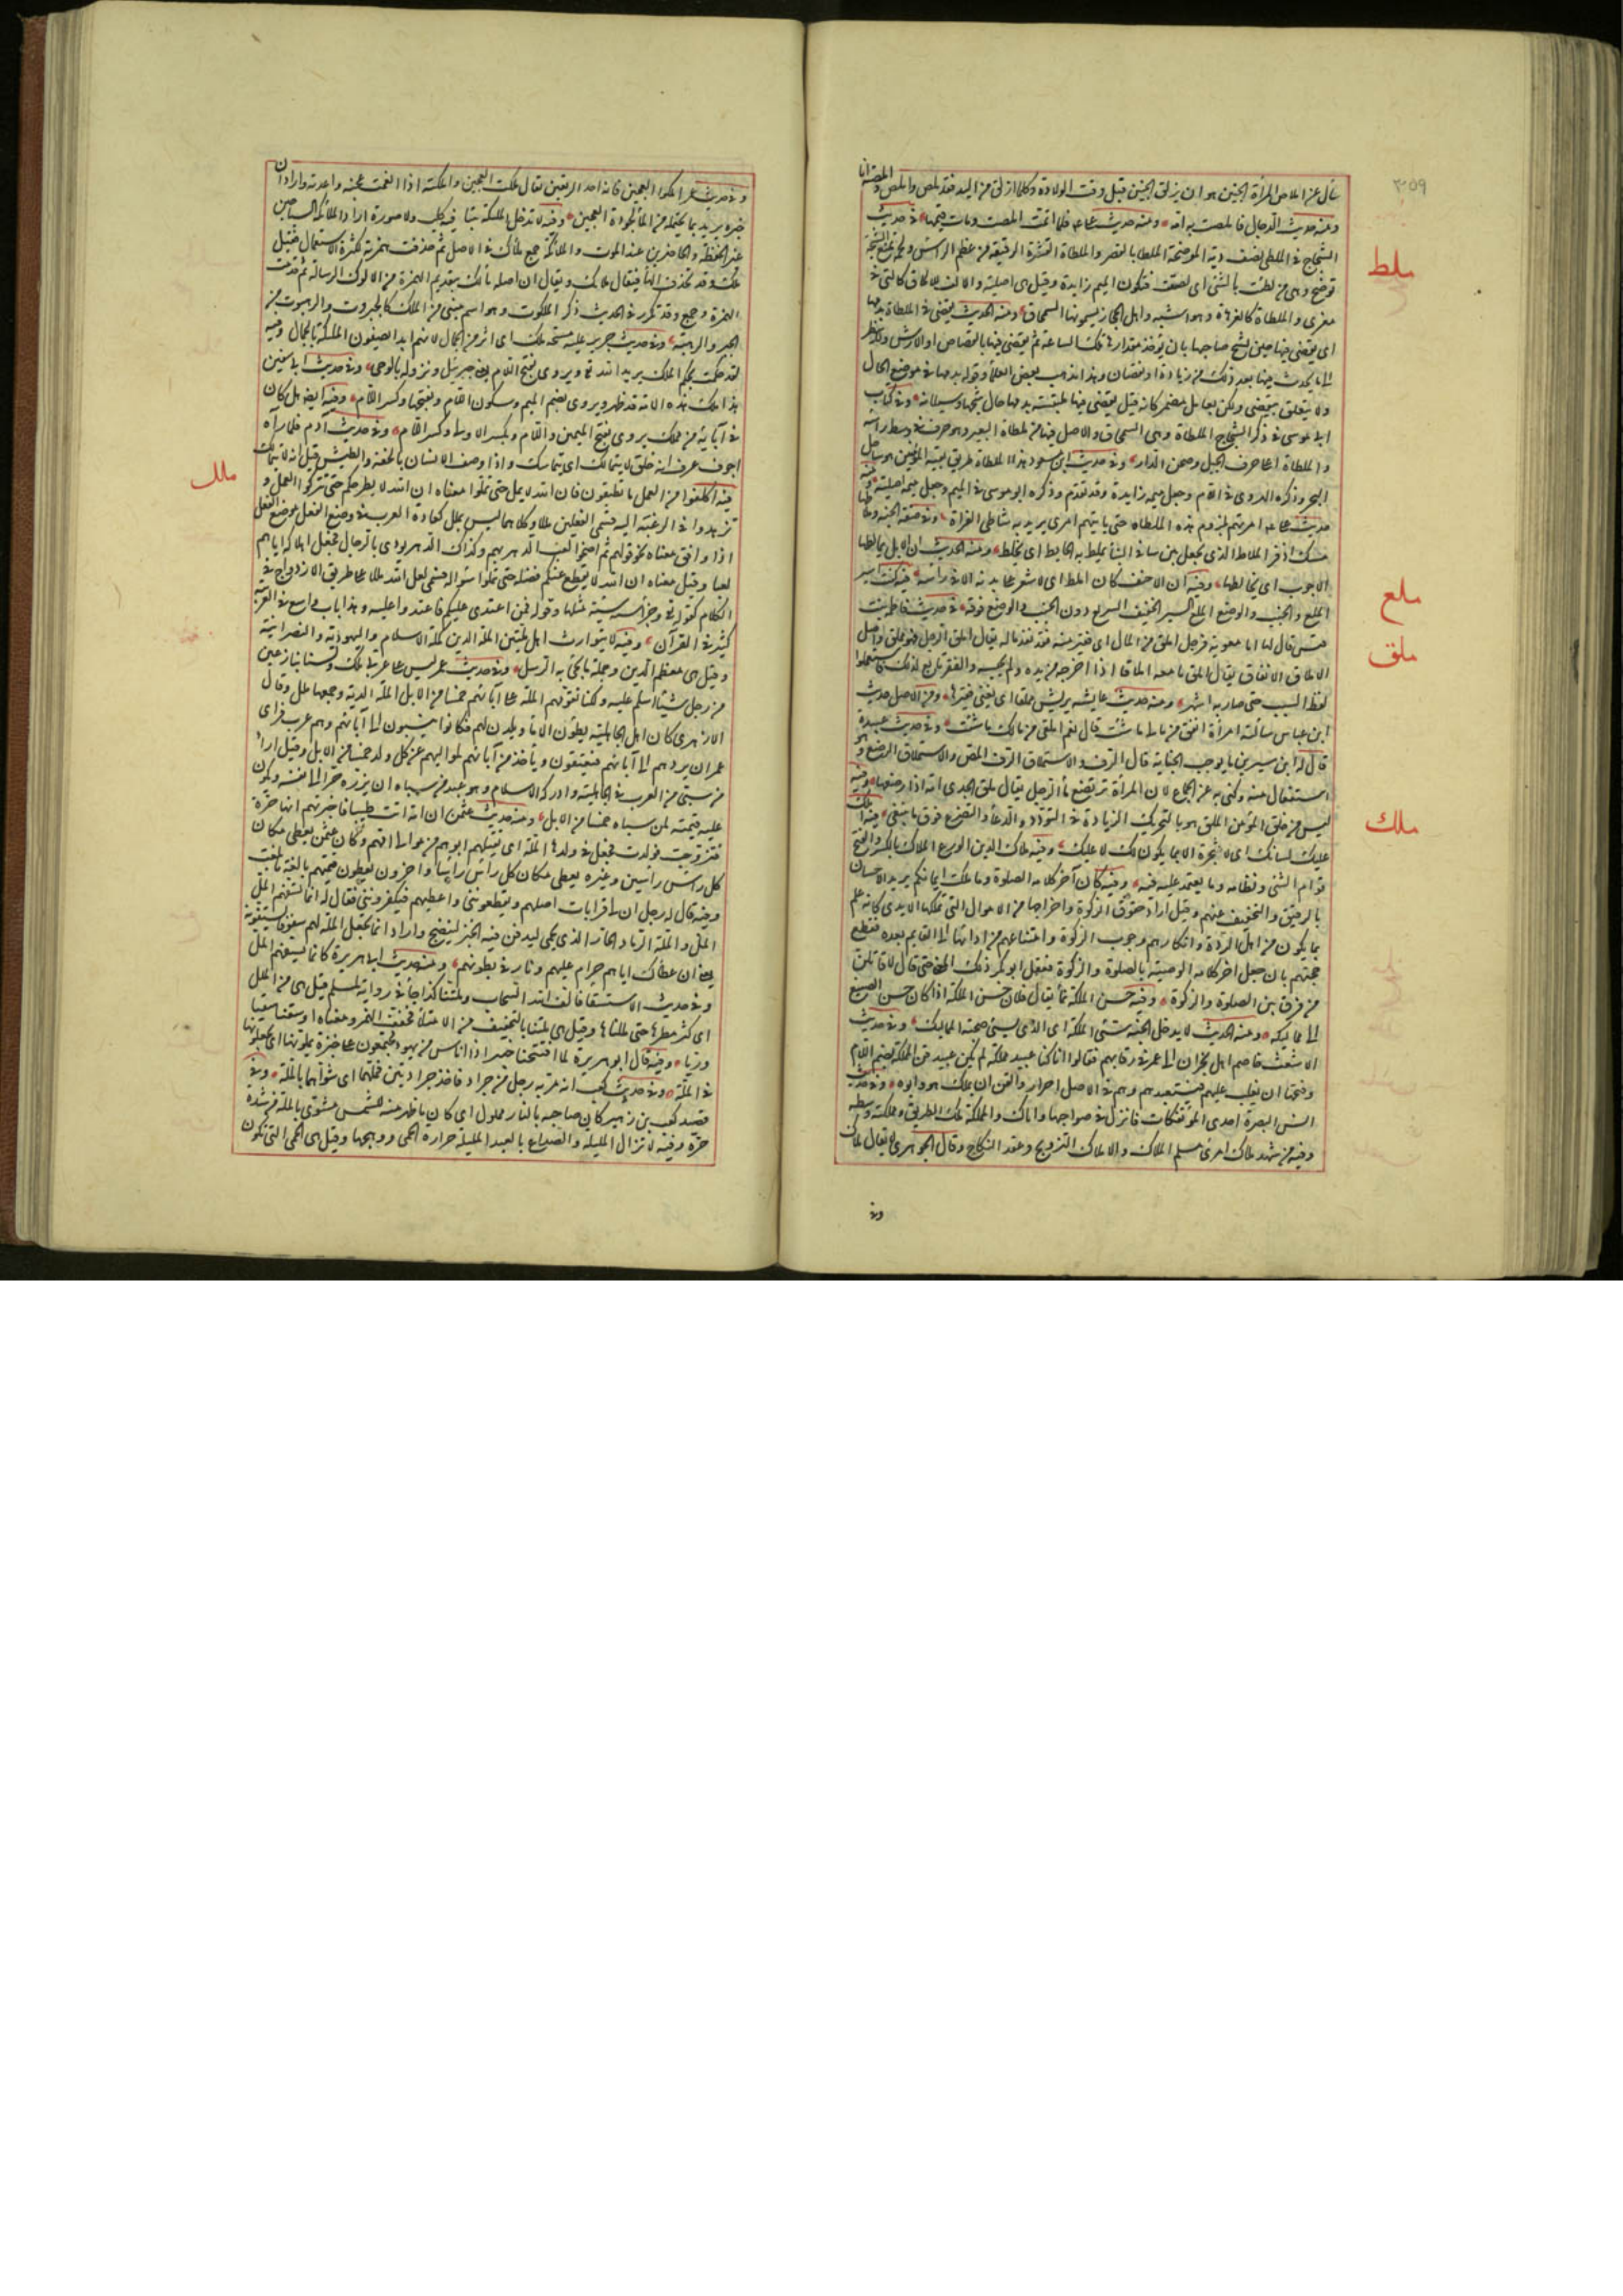 ٣٥٩
سأل عن املاص المرأة الجنين هو ان يزلق الجنين قبل وقت الولادة وكلما زلق من اليد فقد ملص واملص
ومنه حديث الدجال فاملصت به امه ومنه حديث علي فلما اتمت املصت ومات قيمها في حديث
الشجاج في الملطى نصف دية الموضحة الملطا بالقصر والملطاة القشرة الرقيقة بين عظم الراس ولحمه تمنع الشجة
ملط
اى يقتضى فيها حين يشج صاحبها بان يؤخذ مقدارها تلك الساعة ثم يقتضى فيها بالقصاص او الارش ولا ينظر
الى ما يحدث فيها بعد ذلك من زيادة او نقصان وهذا مذهب بعض العلماء وقوله بدمها في موضع الحال
ولا يتعلق بيقتضى ولكن بعامل مضمر كانه قيل يقتضى فيها ملتبسة بدمها حال شجها وسيلانه وفي كتاب
ابى موسى في ذكر الشجاج الملطاة وهى السمحاق والاصل فيها من ملطاة البعير وهو حرف في وسط راسه
والملطاة اعلا حرف الجبل وصحن الدار وفي حديث ابن مسعود هذا الملطاة طريق بقية المؤمنين هو ساحل
البحر وذكره الهروى في اللام وجعل ميمه زايدة وقد تقدم وذكره ابو موسى في الميم وجعل ميمه اصلية ومنه
مسك اذفر الملاط الذى يجعل بين سافى البناء يملط به الحايط اى يخلط ومنه الحديث ان الابل يمالطها
الاجرب اى يخالطها وفيه ان الاحنف كان املط اى لا شعر على بدنه الا في راسه فيه كنت اسير
ملع
الملع والخبب والوضع الملع السير الخفيف السريع دون الخبب والوضع فوقه في حديث فاطمة بنت
ملق
قيس قال لها اما معوية فرجل املق من المال اى فقير منه قد نفذ ماله يقال املق الرجل فهو مملق واصل
الاملاق الانفاق يقال املق ما معه املاقا اذا اخرجه من يده ولم يحبسه والفقر تابع لذلك فاستعملوا
لفظ السبب حتى صار به اشهر ومنه حديث عايشة يريش مملقا اى يغنى فقيرها ومن الاصل حديث
ابن عباس سالته امرأة انفق من مالى ما شئت قال نعم املقى من مالك ما شئت وفي حديث عبيدة
قال له ابن سيرين ما يوجب الجنابة قال الرف والاستملاق الرف المص والاستملاق الرضع وهو
استفعال منه وكنى به عن الجماع لان المرأة ترتضع ماء الرجل يقال ملق الجدى امه اذا رضعها وفيه
ليس من خلق المؤمن الملق هو بالتحريك الزيادة في التودد والدعاء والتضرع فوق ما ينبغى فيه املك
ملك
عليك لسانك اى لا تجره الا بما يكون لك لا عليك وفيه ملاك الدين الورع الملاك بالكسر والفتح
قوام الشئ ونظامه وما يعتمد عليه فيه وفيه كان آخر كلامه الصلوة وما ملكت ايمانكم يريد الاحسان
بالرقيق والتخفيف عنهم وقيل اراد حقوق الزكوة واخراجها من الاموال التى تملكها الايدى كانه علم
بما يكون من اهل الردة وانكارهم وجوب الزكوة وامتناعهم من ادائها الى القايم بعده فقطع
حجتهم بان جعل اخر كلامه الوصية بالصلوة والزكوة فعقل ابو بكر ذلك المعنى حتى قال لاقاتلن
من فرق بين الصلوة والزكوة وفيه حسن الملكة نماء يقال فلان حسن الملكة اذا كان حسن الصنيع
الى مماليكه ومنه الحديث لا يدخل الجنة سئ الملكة اى الذى يسئ صحبة المماليك وفي حديث
الاشعث خاصم اهل نجران الى عمر في رقابهم فقالوا انا كنا عبيد مملكة لم نكن عبيد قن المملكة بضم اللام
وفتحها ان يغلب عليهم فيستعبدهم وهم في الاصل احرار والقن ان يملك هو وابوه وفي حديث
انس البصرة احدى المؤتفكات فانزل في ضواحيها واياك والمملكة ملك الطريق ومملكته وسطه
وفيه من شهد ملاك امرئ مسلم الملاك والاملاك التزويج وعقد النكاح وقال الجوهرى لا يقال ملاك
وفي
وفي حديث عمر املكوا العجين فانه احد الريعين يقال ملكت العجين واملكته اذا انعمت عجنه واجدته واراد ان
خبزه يزيد بما يحتمله من الماء لجودة العجين وفيه لا تدخل الملئكة بيتا فيه كلب ولا صورة اراد الملائكة السياحين
غير الحفظة والحاضرين عند الموت والملائكة جمع ملأك في الاصل ثم حذفت همزته لكثرة الاستعمال فقيل
ملك وقد تحذف الهاء فيقال ملائك ويقال ان اصله مألك بتقديم الهمزة من الالوك الرسالة ثم قدمت
الهمزة وجمع وقد تكرر في الحديث ذكر الملكوت وهو اسم مبنى من الملك كالجبروت والرهبوت من
الجبر والرهبة وفي حديث جرير عليه مسحة ملك اى اثر من الجمال لانهم ابدا يصفون الملئكة بالجمال وفيه
لقد حكمت بحكم الملك يريد الله تعالى ويروى بفتح اللام يعنى جبرئيل ونزوله بالوحى وفي حديث ابى سفين
هذا ملك هذه الامة قد ظهر ويروى بضم الميم وسكون اللام وبفتحها وكسر اللام وفيه ايضا هل كان
في آبائه من ملك يروى بفتح الميمين واللام وبكسر الاولى وكسر اللام وفي حديث آدم فلما رآه
اجوف عرف انه خلق لا يتمالك اى يتماسك واذا وصف الانسان بالخفة والطيش قيل انه لا يتمالك
ملل
فيه اكلفوا من العمل ما تطيقون فان الله لا يمل حتى تملوا معناه ان الله لا يطرحكم حتى تتركوا العمل و
تزهدوا في الرغبة اليه فسمى الفعلين مللا وكلاهما ليس بملل كعادة العرب في وضع الفعل موضع الفعل
اذا وافق معناه نحو قولهم ثم اضحوا لعب الدهر بهم وكذاك الدهر يودى بالرجال فجعل اهلاكه اياهم
لعبا وقيل معناه ان الله لا يقطع عنكم فضله حتى تملوا سؤاله فسمى فعل الله مللا على طريق الازدواج في
الكلام كقوله تعالى وجزاء سيئة سيئة مثلها وقوله فمن اعتدى عليكم فاعتدوا عليه وهذا باب واسع في العربية
كثير في القرآن وفيه لا يتوارث اهل ملتين الملة الدين كملة الاسلام واليهودية والنصرانية
وقيل هى معظم الدين وجملة ما يجئ به الرسل وفي حديث عمر ليس على عربى ملك ولسنا بنازعين
من رجل شيئا اسلم عليه ولكنا نقومهم الملة على آبائهم خمسا من الابل الملة الدية وجمعها ملل وقال
الازهرى كان اهل الجاهلية يطؤن الاماء ويلدن لهم فكانوا ينسبون الى آبائهم وهم عرب فراى
عمر ان يردهم الى آبائهم فيعتقون ويأخذ من آبائهم لمواليهم عن كل ولد خمسا من الابل وقيل اراد
من سبى من العرب في الجاهلية وادركه الاسلام وهو عبد من سباه ان يرده حرا الى نسبه ويكون
عليه قيمته لمن سباه خمسا من الابل ومنه حديث عثمن ان امة اتت طيئا فاخبرتهم انها حرة
فتزوجت فولدت فجعل في ولدها الملة اى يفتكهم ابوهم من موالى امهم وكان عثمن يعطى مكان
كل راس راسين وغيره يعطى مكان كل راس راسا واخرون يعطون قيمتهم بالغة ما بلغت
وفيه قال له رجل ان لى قرابات اصلهم ويقطعوننى واعطيهم فيكفروننى فقال له انما تسفهم المل
المل والملة الرماد الحار الذى يحمى ليدفن فيه الخبز لينضج واراد انما تجعل الملة لهم سفوفا يستفونه
يعنى ان عطاءك اياهم حرام عليهم ونار في بطونهم ومنه حديث ابى هريرة كانما يسفهم المل
وفي حديث الاستسقا فالف الله السحاب وملتنا كذا جاء في رواية لمسلم قيل هى من الملل
اى كثر مطرها حتى مللناها وقيل هى ملتنا بالتخفيف من الامتلاء فخفف الهمز ومعناه اوسعتنا سقيا
وريا وفيه قال ابو هريرة لما افتتحنا خيبر اذا اناس من يهود مجتمعون على خبزة يملونها اى يجعلونها
في الملة وفي حديث كعب انه مر به رجل من جراد فاخذ جرادتين فملهما اى شواهما بالملة وفي
قصيد كعب بن زهير كان ضاحيه بالنار مملول اى كان ما ظهر منه للشمس مشوى بالملة من شدة
حره وفيه لا تزال المليلة والصداع بالعبد المليلة حرارة الحمى ووهجها وقيل هى الحمى التى تكون